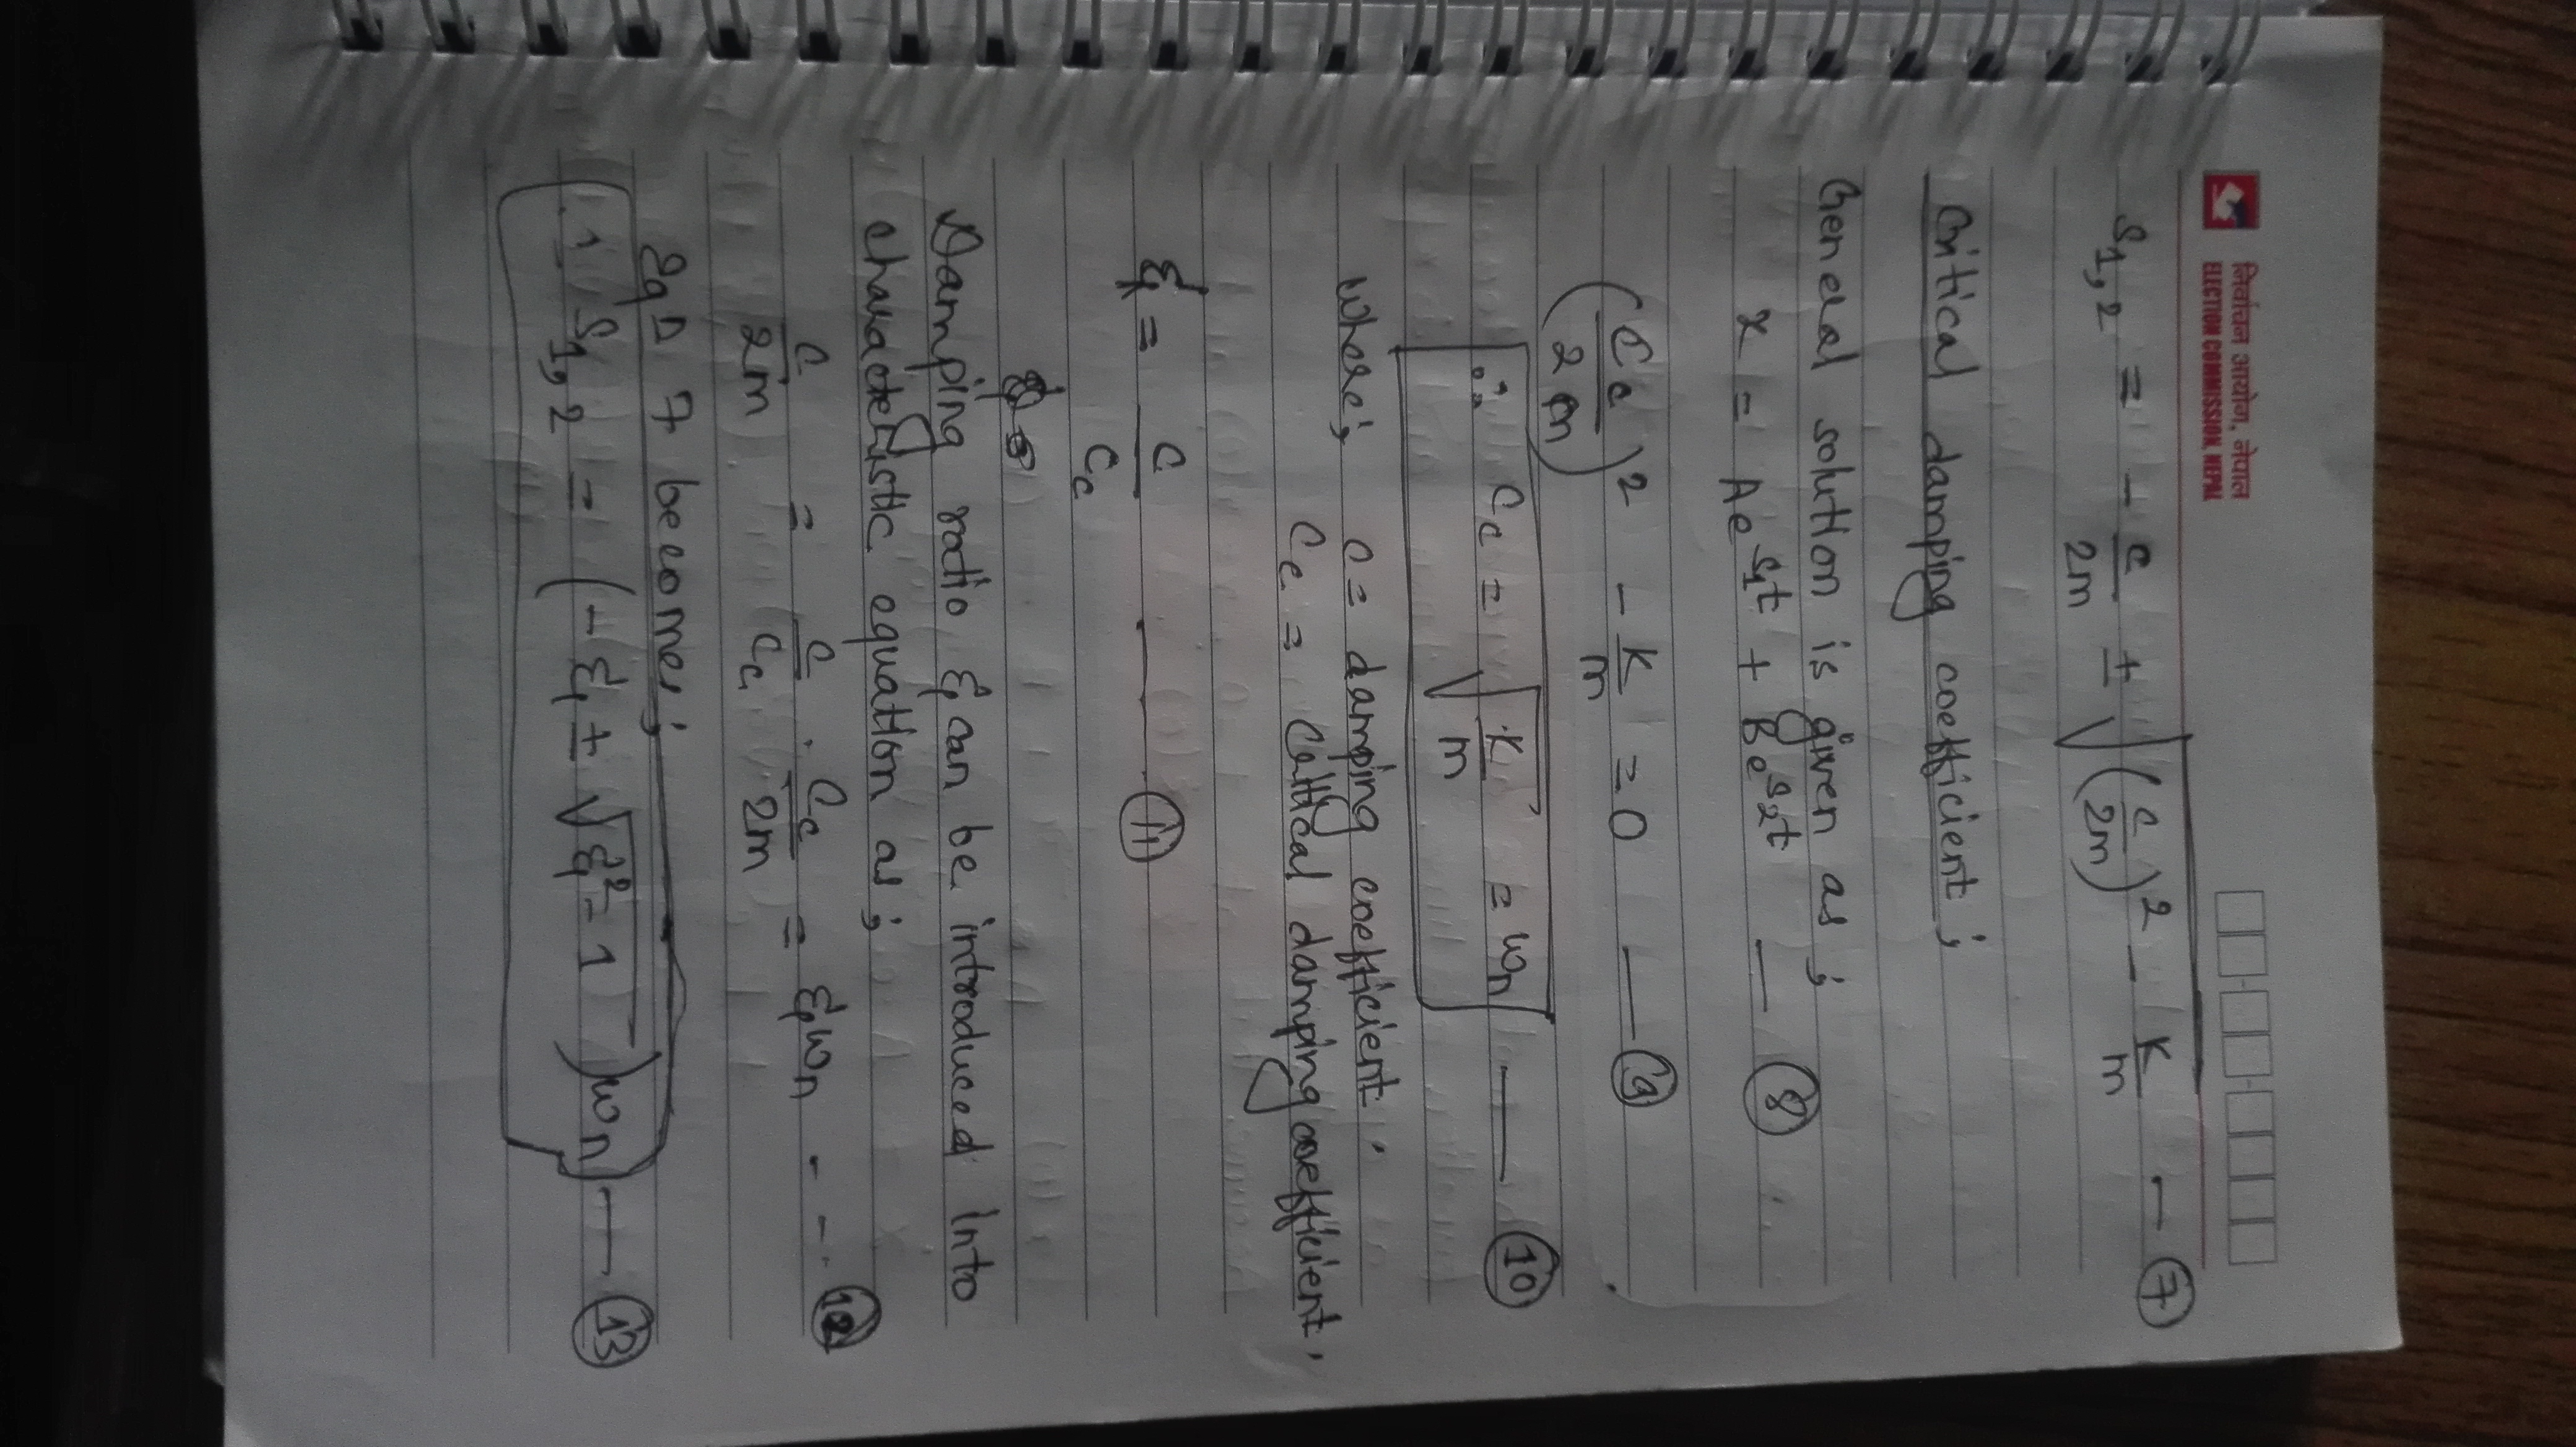 निर्वाचन आयोग, नेपाल
ELECTION COMMISSION, NEPAL
S1,2 = - c/2m ± √((c/2m)² - k/m) — (7)
Critical damping coefficient ;
General solution is given as ;
x = Ae^s1t + Be^s2t — (8)
(Cc/2m)² - k/m = 0 — (9)
∴ Cc = √(k/m) = ωn — (10)
Where ; c = damping coefficient .
Cc = Critical damping coefficient .
ξ = c/Cc — (11)
Damping ratio ξ can be introduced into
characteristic equation as ;
c/2m = c/Cc . Cc/2m = ξωn - - . (12)
Eqn 7 becomes ;
∴ S1,2 = (- ξ ± √(ξ² - 1)) ωn — (13)